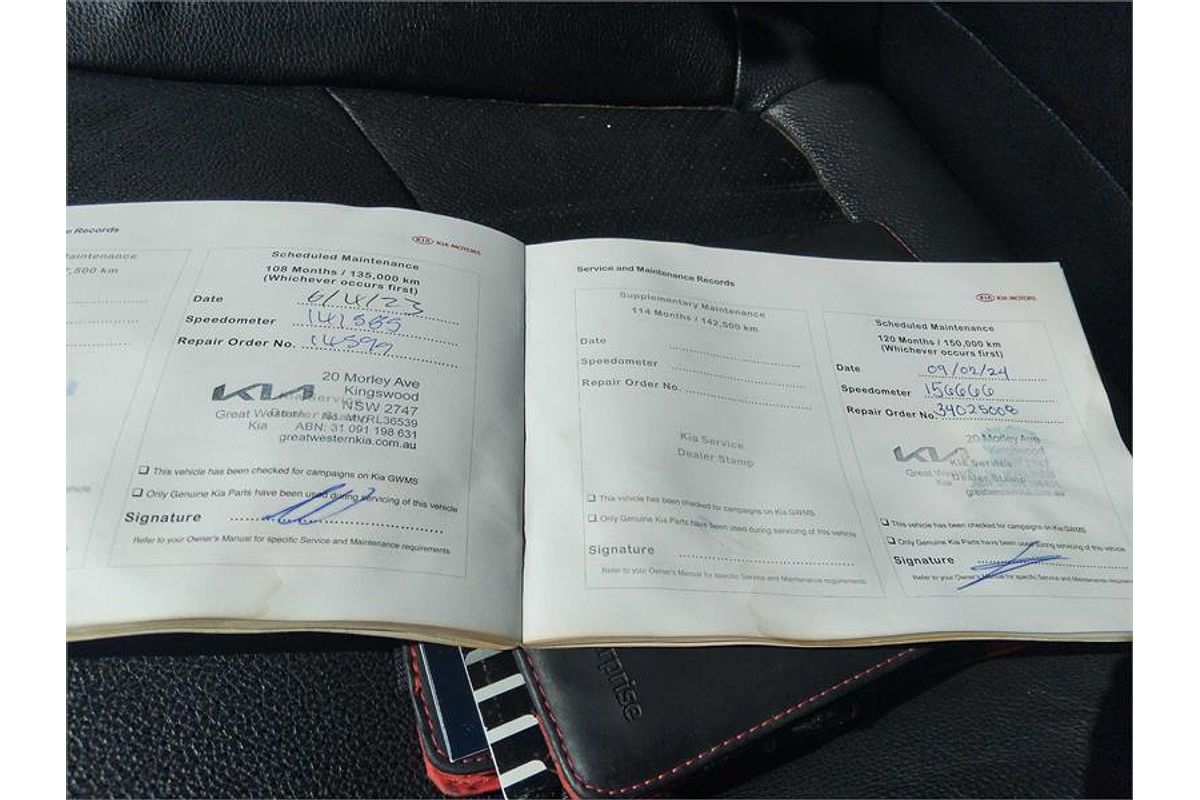 n Records
KIA KIA MOTORS
aintenance
,500 km
Scheduled Maintenance
108 Months / 135,000 km
(Whichever occurs first)
Date 6/4/23
Speedometer 141565
Repair Order No. 14599
KIA
20 Morley Ave
Kingswood
NSW 2747
Great Western
Kia
MVRL36539
ABN: 31 091 198 631
greatwesternkia.com.au
This vehicle has been checked for campaigns on Kia GWMS
Only Genuine Kia Parts have been used during servicing of this vehicle
Signature
Refer to your Owner's Manual for specific Service and Maintenance requirements
ehicle
Service and Maintenance Records
KIA KIA MOTORS
Supplementary Maintenance
114 Months / 142,500 km
Date
Speedometer
Repair Order No.
Kia Service
Dealer Stamp
This vehicle has been checked for campaigns on Kia GWMS
Only Genuine Kia Parts have been used during servicing of this vehicle
Signature
Refer to your Owner's Manual for specific Service and Maintenance requirements
Scheduled Maintenance
120 Months / 150,000 km
(Whichever occurs first)
Date 09/02/24
Speedometer 156666
Repair Order No. 34025008
KIA
20 Morley Ave
Kingswood
Kia Service
Dealer Stamp
Kia
This vehicle has been checked for campaigns on Kia GWMS
Only Genuine Kia Parts have been used during servicing of this vehicle
Signature
Refer to your Owner's Manual for specific Service and Maintenance requirements
rprise